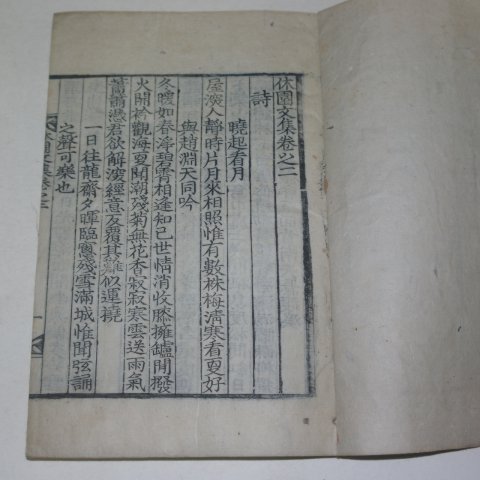 休園文集卷之二
詩
曉起看月
屋滨人靜時片月來相照惟有數株梅淸寒看更好
與趙淵天同吟
冬暖如春淨碧霄相逢知己世情消收滕擁鑪閒撥
火開衿觀海更聞潮殘菊無花香寂寂寒雲送雨氣
蕭蕭憑君欲解演經意反覆其難似運橈
一日往龍齋夕暉臨窓殘雪滿城惟聞弦誦
之聲可樂也